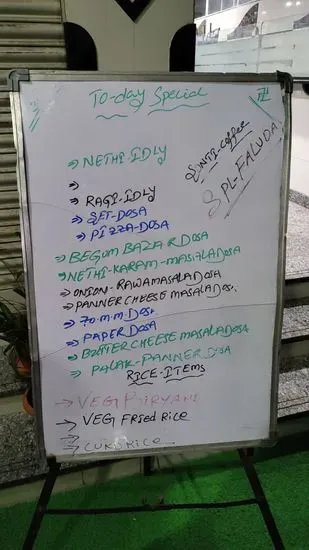 To-day Special
SUNTI-Coffee
SPL-FALUDA
⇒ NETHI-IDLY
⇒
⇒ RAGI-IDLY
⇒ SET-DOSA
⇒ PIZZA-DOSA
⇒ BEGUM BAZAR DOSA
⇒ NETHI-KARAM-MASALA DOSA
⇒ ONION-RAWA MASALA DOSA
⇒ PANNER CHEESE MASALA DOSA
⇒ 70-M.M DOSA
⇒ PAPER DOSA
⇒ BUTTER CHEESE MASALA DOSA
⇒ PALAK-PANNER DOSA
RICE-ITEMS
→ VEG BIRYANI
→ VEG FRIED RICE
→
→ CURD RICE